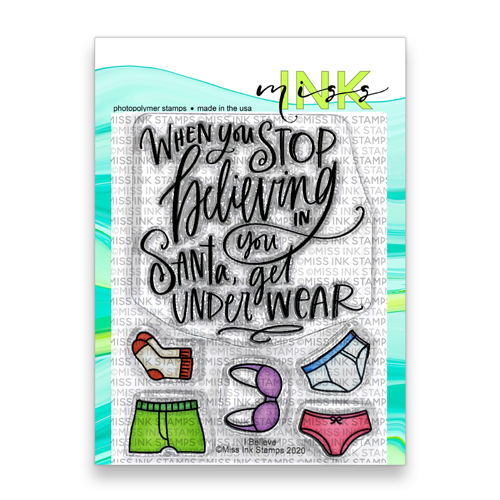 miss
INK
photopolymer stamps • made in the usa
WHEN YOU STOP
believing
IN
you
SANTA, get
UNDERWEAR
I Believe
©Miss Ink Stamps 2020